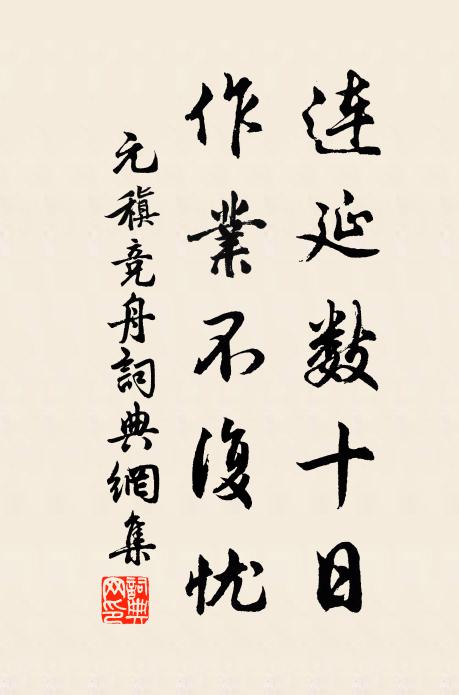 连延数十日
作業不復忧
元稹竞舟詞典網集
詞典